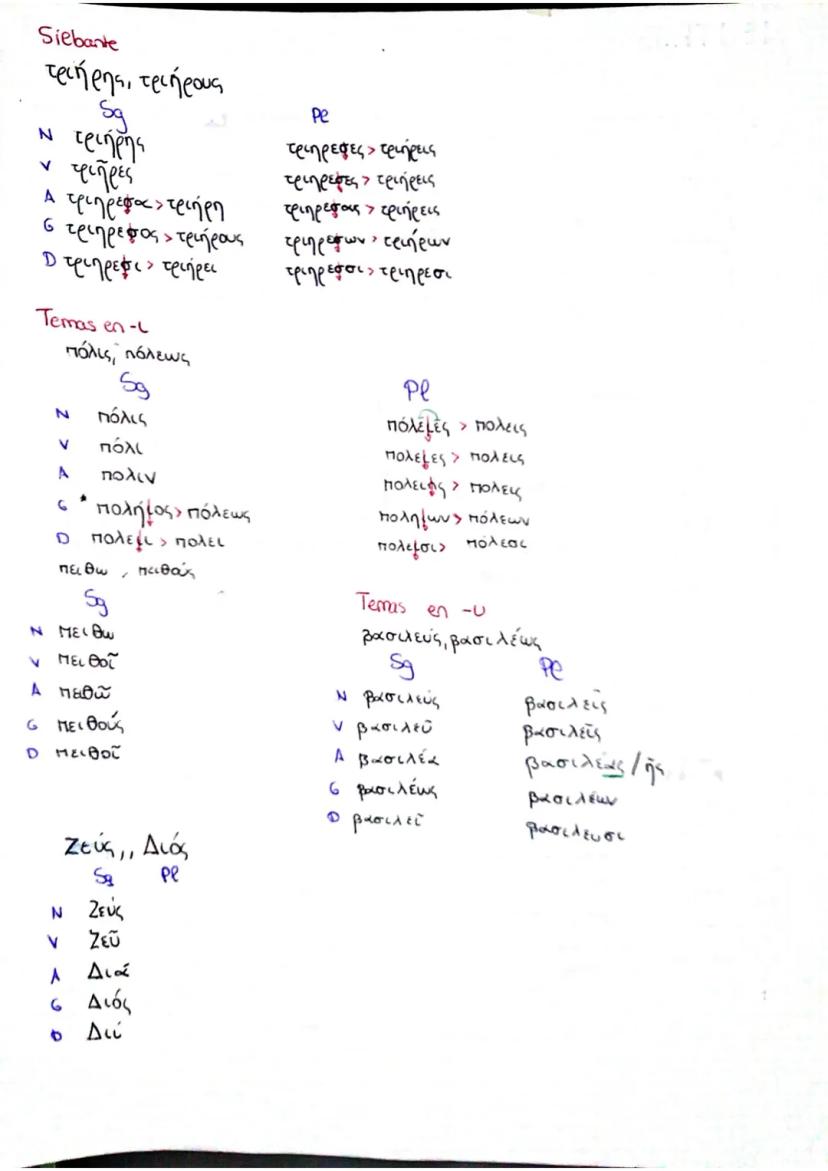 Silbante
τριήρης, τριήρους
Sg Pl
N τριήρης τριηρεσες > τριήρεις
V τριῆρες τριηρεσες > τριήρεις
A τριηρεσα > τριήρη τριηρεσας > τριήρεις
G τριηρεσος > τριήρους τριηρεσων > τριήρων
D τριηρεσι > τριήρει τριηρεσσι > τριηρεσι
Temas en -ι
πόλις, πόλεως
Sg Pl
N πόλις πόλει̯ες > πολεις
V πόλι πολει̯ες > πολεις
A πολιν > πολεις
G *ποληι̯ος > πόλεως ποληι̯ων > πόλεων
D πολει̯ι > πολει πολει̯σι > πόλεσι
πειθω, πειθούς
Sg
N πειθω
V πειθοῖ
A πειθῶ
G πειθούς
D πειθοῖ
Temas en -υ
βασιλεύς, βασιλέως
Sg Pl
N βασιλεύς βασιλεῖς
V βασιλεῦ βασιλεῖς
A βασιλέα βασιλέας / ῆς
G βασιλέως βασιλέων
D βασιλεῖ βασιλευσι
Ζεύς,, Διός
Sg Pl
N Ζεύς
V Ζεῦ
A Διά
G Διός
D Διί